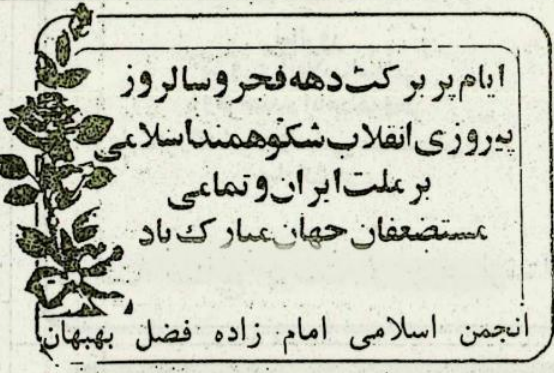 ایام پر برکت دهه فجر و سالروز
پیروزی انقلاب شکوهمند اسلامی
بر ملت ایران و تمامی
مستضعفان جهان مبارک باد
انجمن اسلامی امام زاده فضل بهبهان